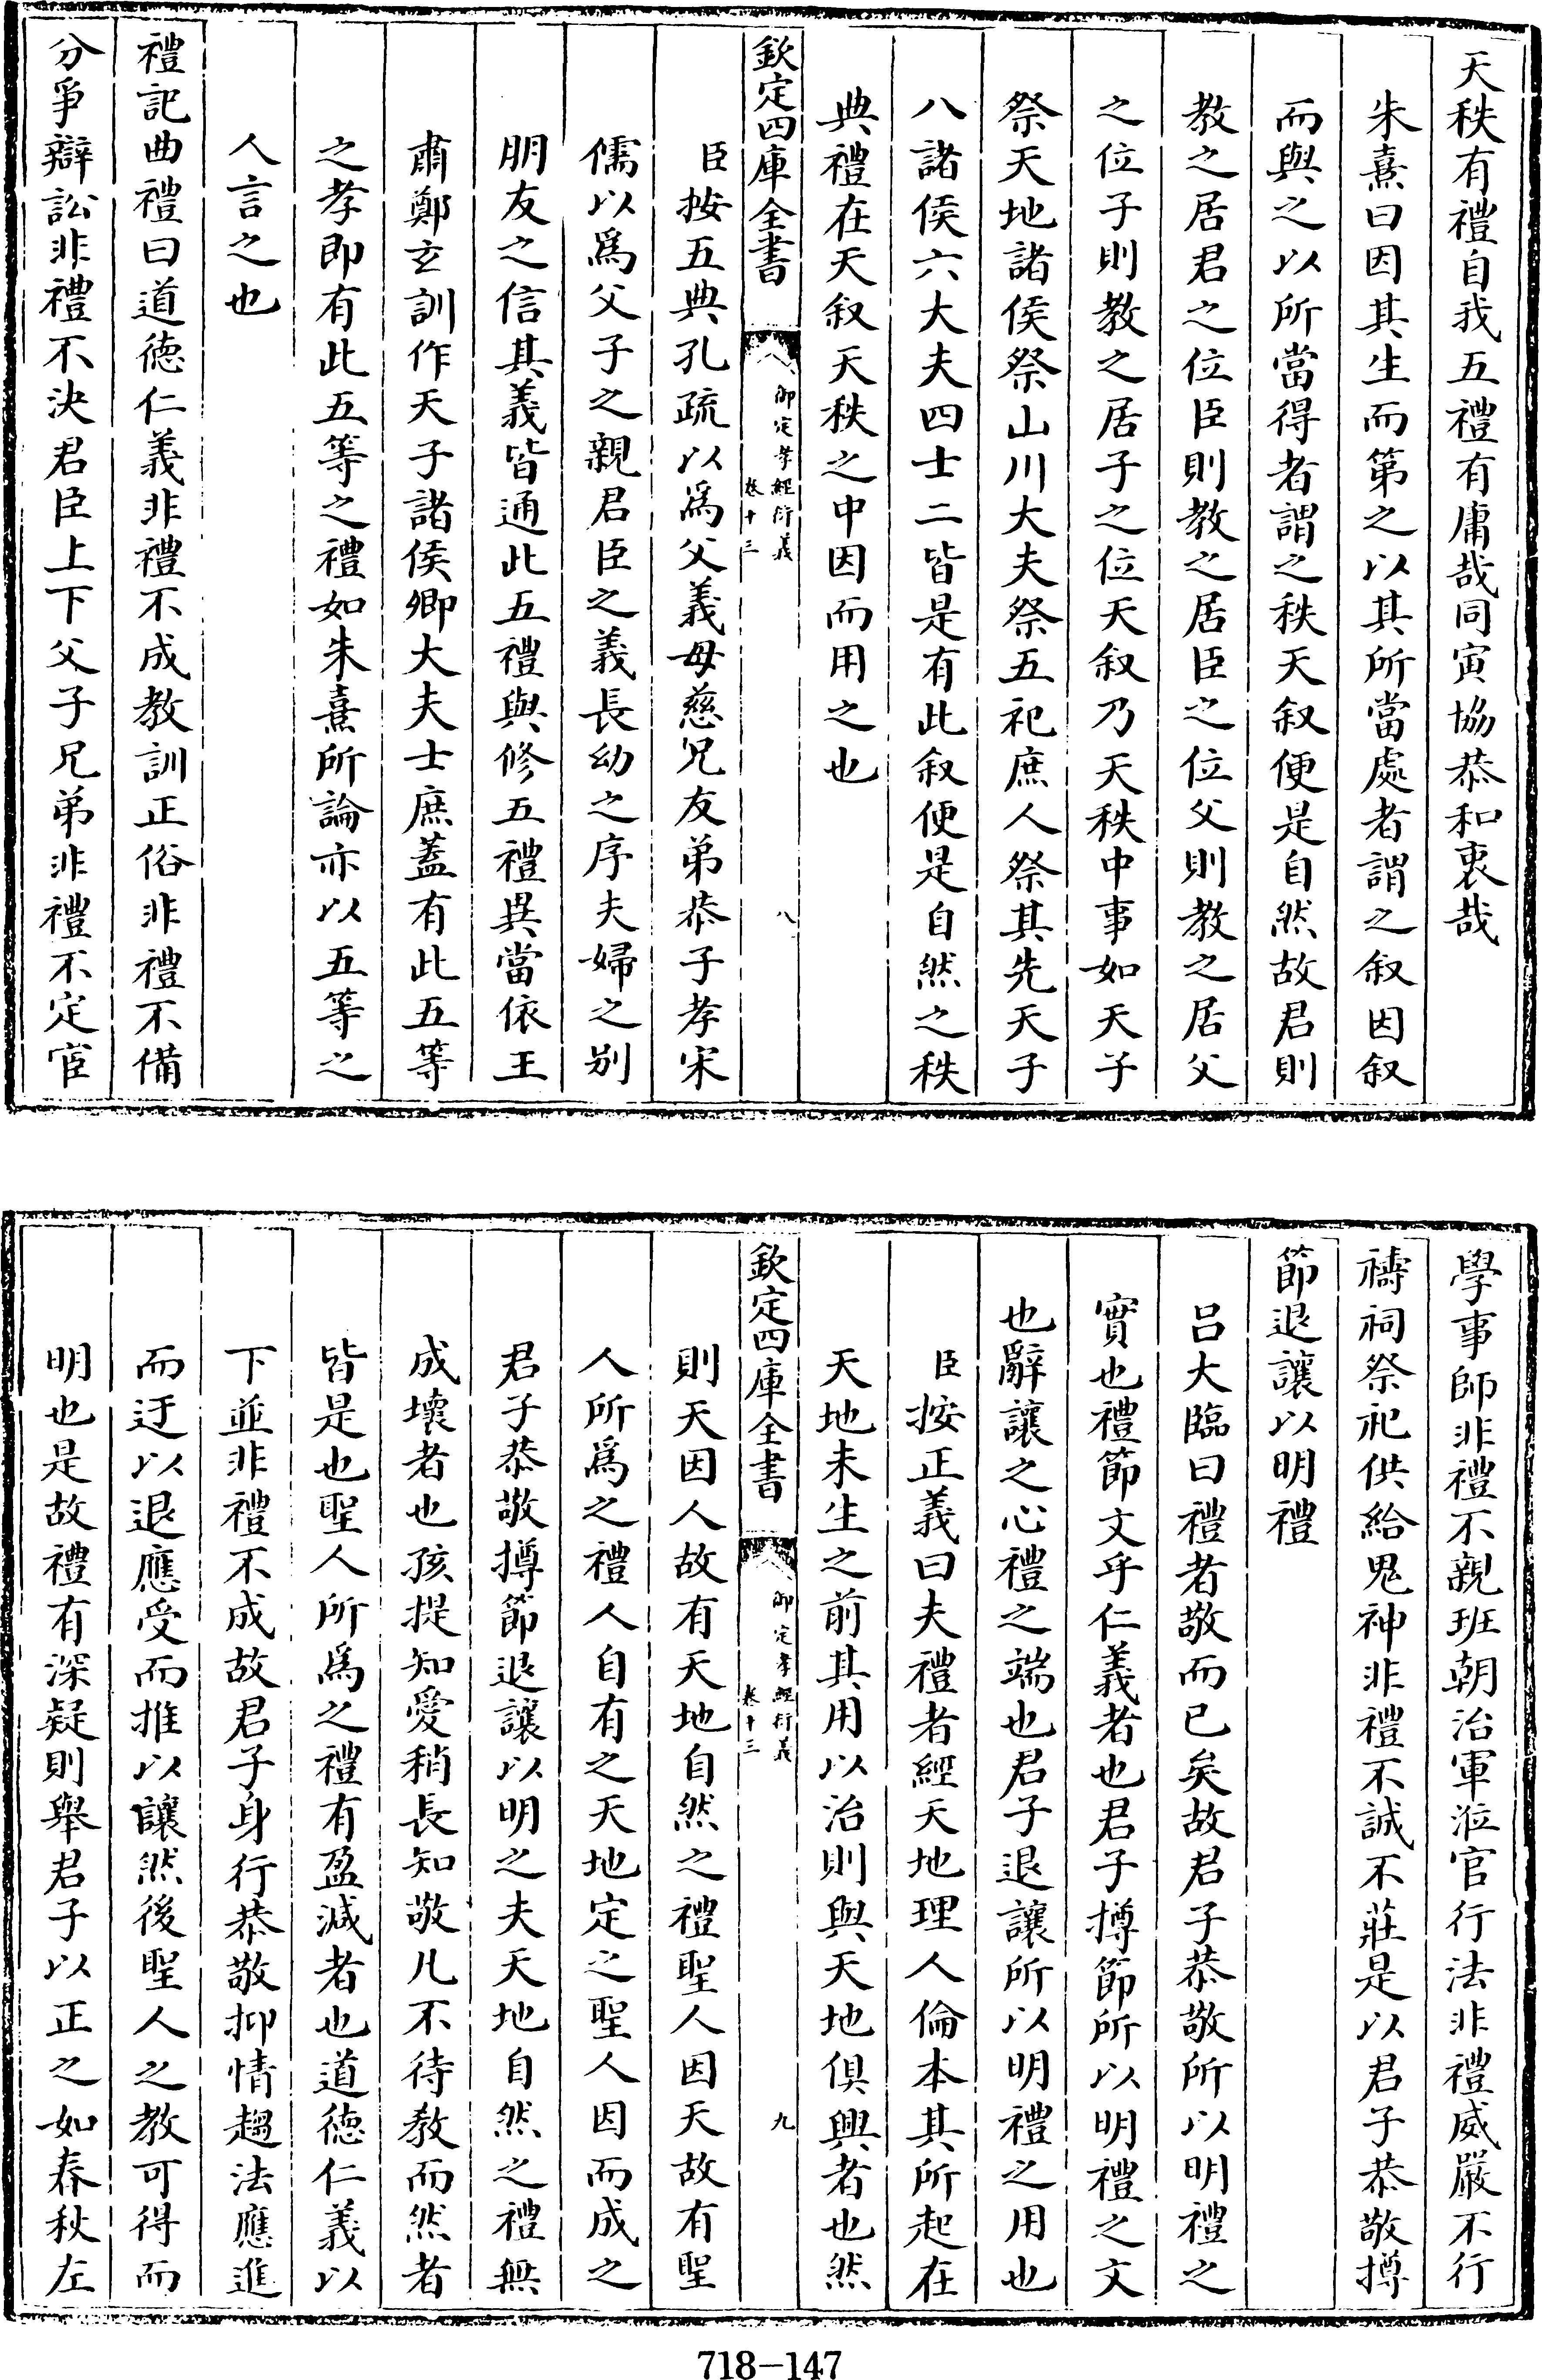 天秩有禮自我五禮有庸哉同寅協恭和衷哉
朱熹曰因其生而第之以其所當處者謂之叙因叙
而與之以所當得者謂之秩天叙便是自然故君則
教之居君之位臣則教之居臣之位父則教之居父
之位子則教之居子之位天叙乃天秩中事如天子
祭天地諸侯祭山川大夫祭五祀庶人祭其先天子
八諸侯六大夫四士二皆是有此叙便是自然之秩
典禮在天叙天秩之中因而用之也
欽定四庫全書
御定孝經衍義
卷十三
八
臣按五典孔疏以為父義母慈兄友弟恭子孝宋
儒以為父子之親君臣之義長幼之序夫婦之别
朋友之信其義皆通此五禮與修五禮異當依王
肅鄭玄訓作天子諸侯卿大夫士庶蓋有此五等
之孝即有此五等之禮如朱熹所論亦以五等之
人言之也
禮記曲禮曰道德仁義非禮不成教訓正俗非禮不備
分爭辯訟非禮不決君臣上下父子兄弟非禮不定宦
學事師非禮不親班朝治軍涖官行法非禮威嚴不行
禱祠祭祀供給鬼神非禮不誠不莊是以君子恭敬撙
節退讓以明禮
吕大臨曰禮者敬而已矣故君子恭敬所以明禮之
實也禮節文乎仁義者也君子撙節所以明禮之文
也辭讓之心禮之端也君子退讓所以明禮之用也
臣按正義曰夫禮者經天地理人倫本其所起在
天地未生之前其用以治則與天地俱興者也然
欽定四庫全書
御定孝經衍義
卷十三
九
則天因人故有天地自然之禮聖人因天故有聖
人所為之禮人自有之天地定之聖人因而成之
君子恭敬撙節退讓以明之夫天地自然之禮無
成壞者也孩提知愛稍長知敬凡不待教而然者
皆是也聖人所為之禮有盈減者也道德仁義以
下並非禮不成故君子身行恭敬抑情趨法應進
而迂以退應受而推以讓然後聖人之教可得而
明也是故禮有深疑則舉君子以正之如春秋左
718-147